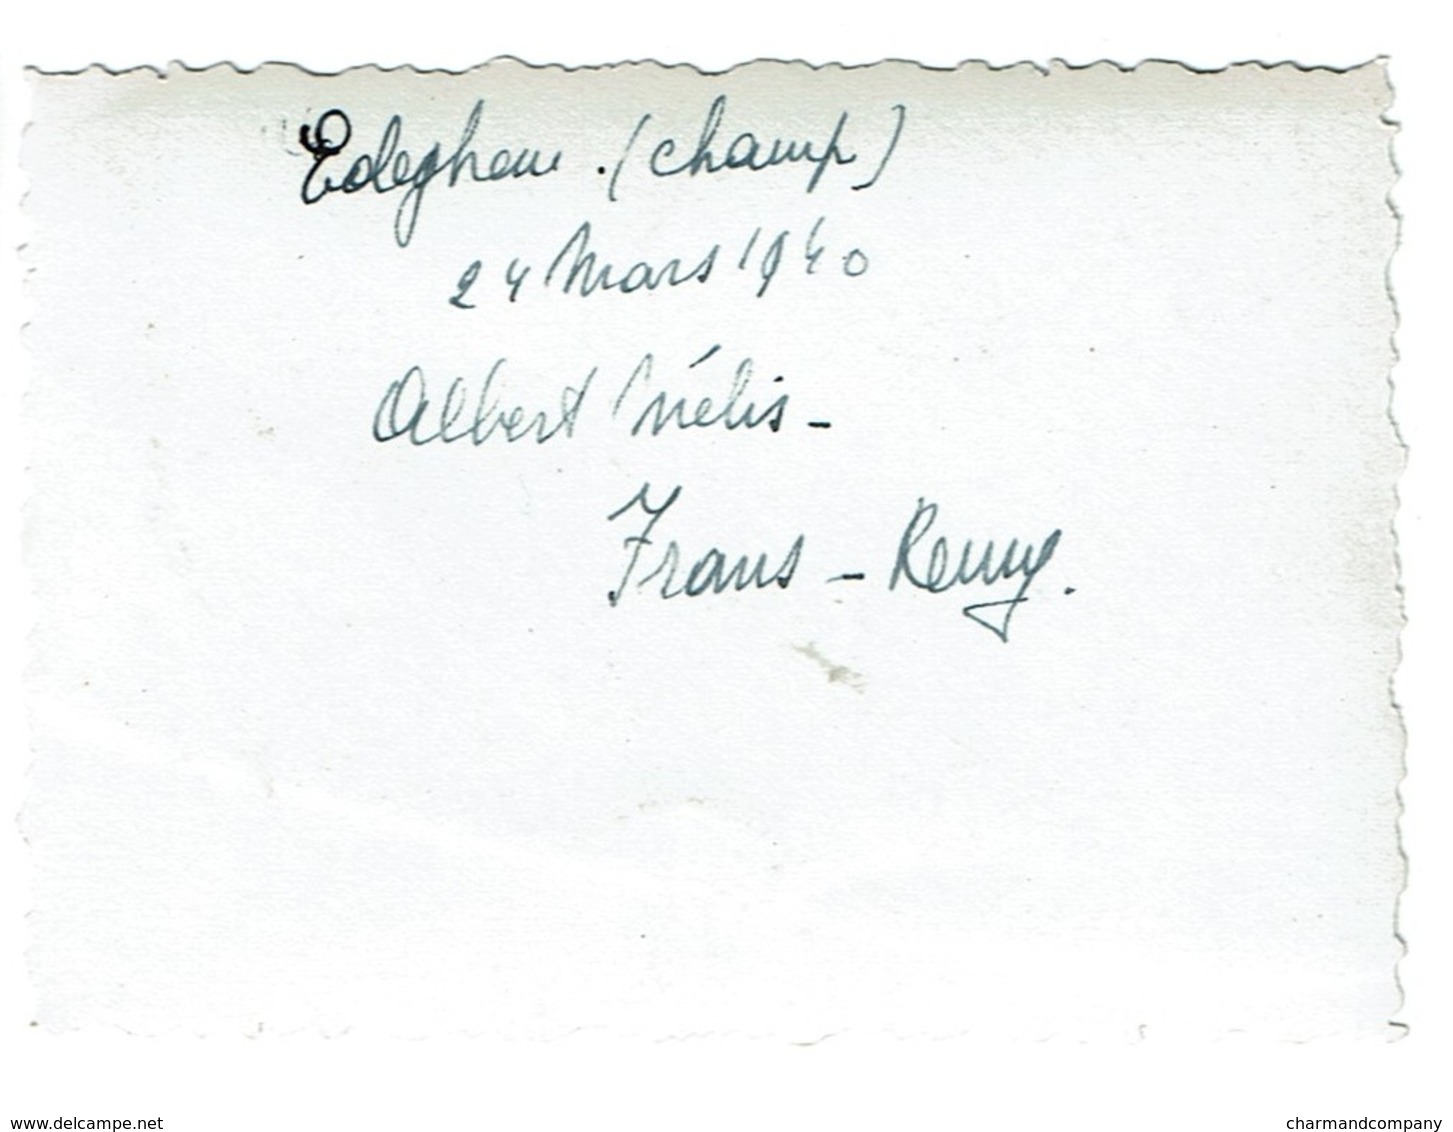 Edeghem . (champ)
24 Mars 1940
Albert Nélis -
Frans - Remy.
www.delcampe.net
charmandcompany